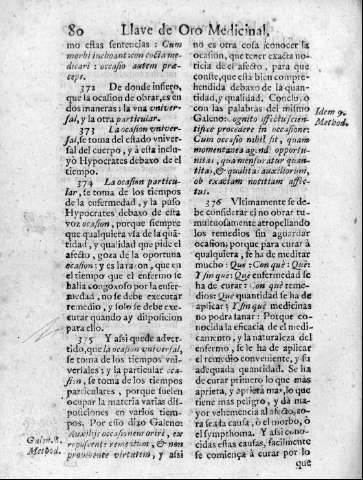 80 Llave de Oro Medicinal,
mo estas sentencias: Cum
morbi inchoant: con cocta me
dicari: occasio autem præ-
ceps.
372 De donde infiero,
que la ocasion de obrar, es en
dos maneras: la vna vniver-
sal, y la otra particular.
373 La ocasion vniver-
sal, se toma del estado vniver-
sal del cuerpo, y à esta inclu
yò Hypocrates debaxo de el
tiempo.
374 La ocasion particu-
lar, se toma de los tiempos
de la enfermedad, y la puso
Hypocrates debaxo de esta
voz ocasion, porque siempre
que qualquiera via de la quã-
tidad, y qualidad que pide el
afecto, goza de la oportuna
ocasion: y es la razon, que en
el tiempo que el enfermo se
halla congoxoso por la enfer
medad, no se debe executar
remedio, y solo se debe exe-
cutar quando ay disposicion
para ello.
375 Y assi quede adver-
tido, que la ocasion vniversal,
se toma de los tiempos vni-
versales; y la particular oca
sion, se toma de los tiempos
particulares, porque suelen
ocupar la materia varias dis-
posiciones en varios tiem-
pos. Por esso dixo Galeno:
Auxilijs occasionem oriri, ex
repulsent: remotum, & non
promovente virtutem, y assi
Galen. 8.
Method.
no es otra cosa conocer la
ocasion, que tener exacta no-
ticia de el afecto, para que
conste, que està bien compre-
hendida debaxo de la quan-
tidad, y qualidad. Concluyo
con las palabras del mismo
Galeno: cognito affectu scien-
tifice procedere in occasione:
Cum occasio nihil sit, quam
momentanea agendi opportu-
nitas, qua mensuratur quan-
titas, & qualitas auxiliorum,
ob exactam notitiam affec-
tus.
Idem 9.
Method.
376 Vltimamente se de-
be considerar el no obrar tu-
multuosamente atropellando
los remedios sin aguardar
ocasion; porque para curar à
qualquiera, se ha de meditar
mucho: Que: Con què: Què
Y fin que: Què enfermedad se
ha de curar: Con què reme-
dios: Què quantidad se ha de
aplicar: Y sin què medicinas
no podra sanar: Porque co-
nocida la eficacia de el medi-
camento, y la naturaleza del
enfermo, se le ha de aplicar
el remedio conveniente, y su
adequada quantidad. Se ha
de curar primero lo que mas
aprieta, y aprieta mas, lo que
tiene mas peligro, y dà ma-
yor vehemencia al afecto, ao-
ra sea la causa, ò el morbo, ò
el symphoma. Y assi cono-
cidas estas causas, facilmente
se comença à curar por lo
que